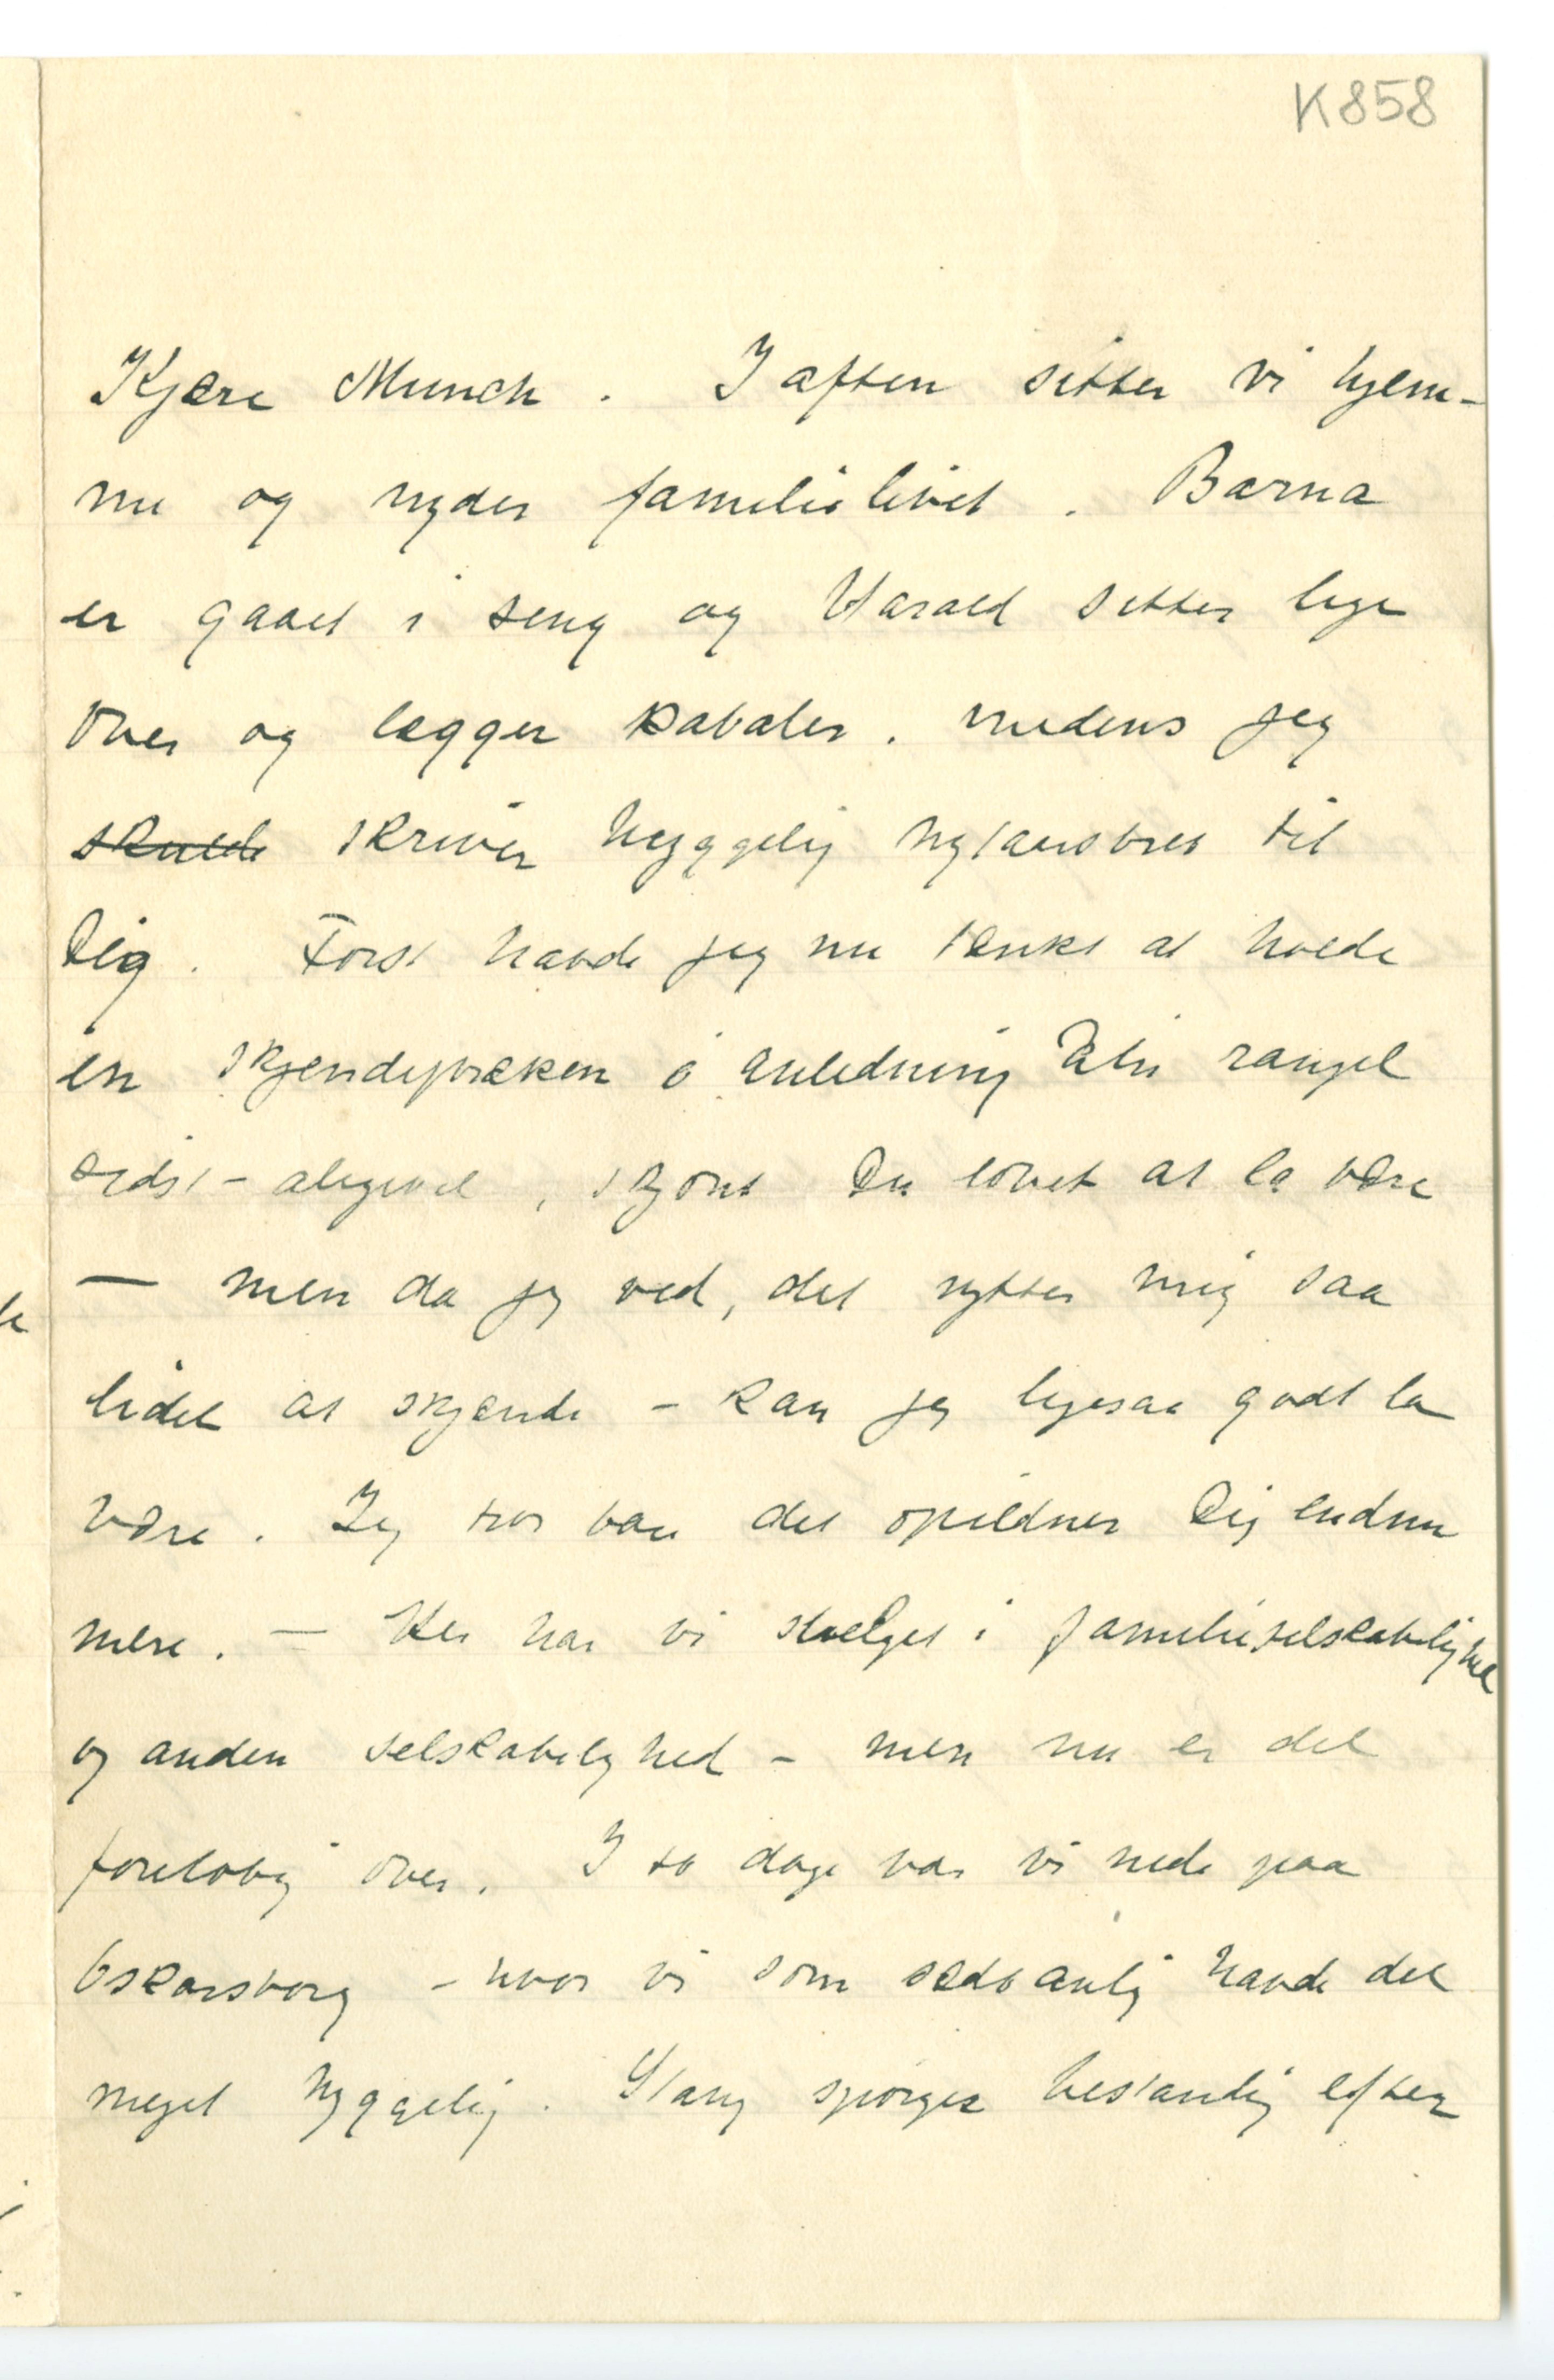 K858
Kjære Munch. I aften sitter vi hjem-
me og nyder familielivet. Barna
er gaaet i seng og Harald sitter lige
over og lægger kabaler. medens jeg
skulde skriver hyggelig nytaarsbrev til
Dig. Først havde jeg nu tænkt at holde
en skjendepræken i anledning Din rangel
sidst – aligevel, skjønt Du lovet at la være
— men da jeg ved, det nytter mig saa
lidet at skjænde – kan jeg ligesaa godt la
være. Jeg tror bare det opildner Dig endnu
mere. — Her har vi svælget i familieselskabelighed
og anden selskabelighed – men nu er det
foreløbig over. I to dage var vi nede paa
Oskarsborg – hvor vi som sædvanlig havde det
meget hyggelig. Stang spørger bestandig efter